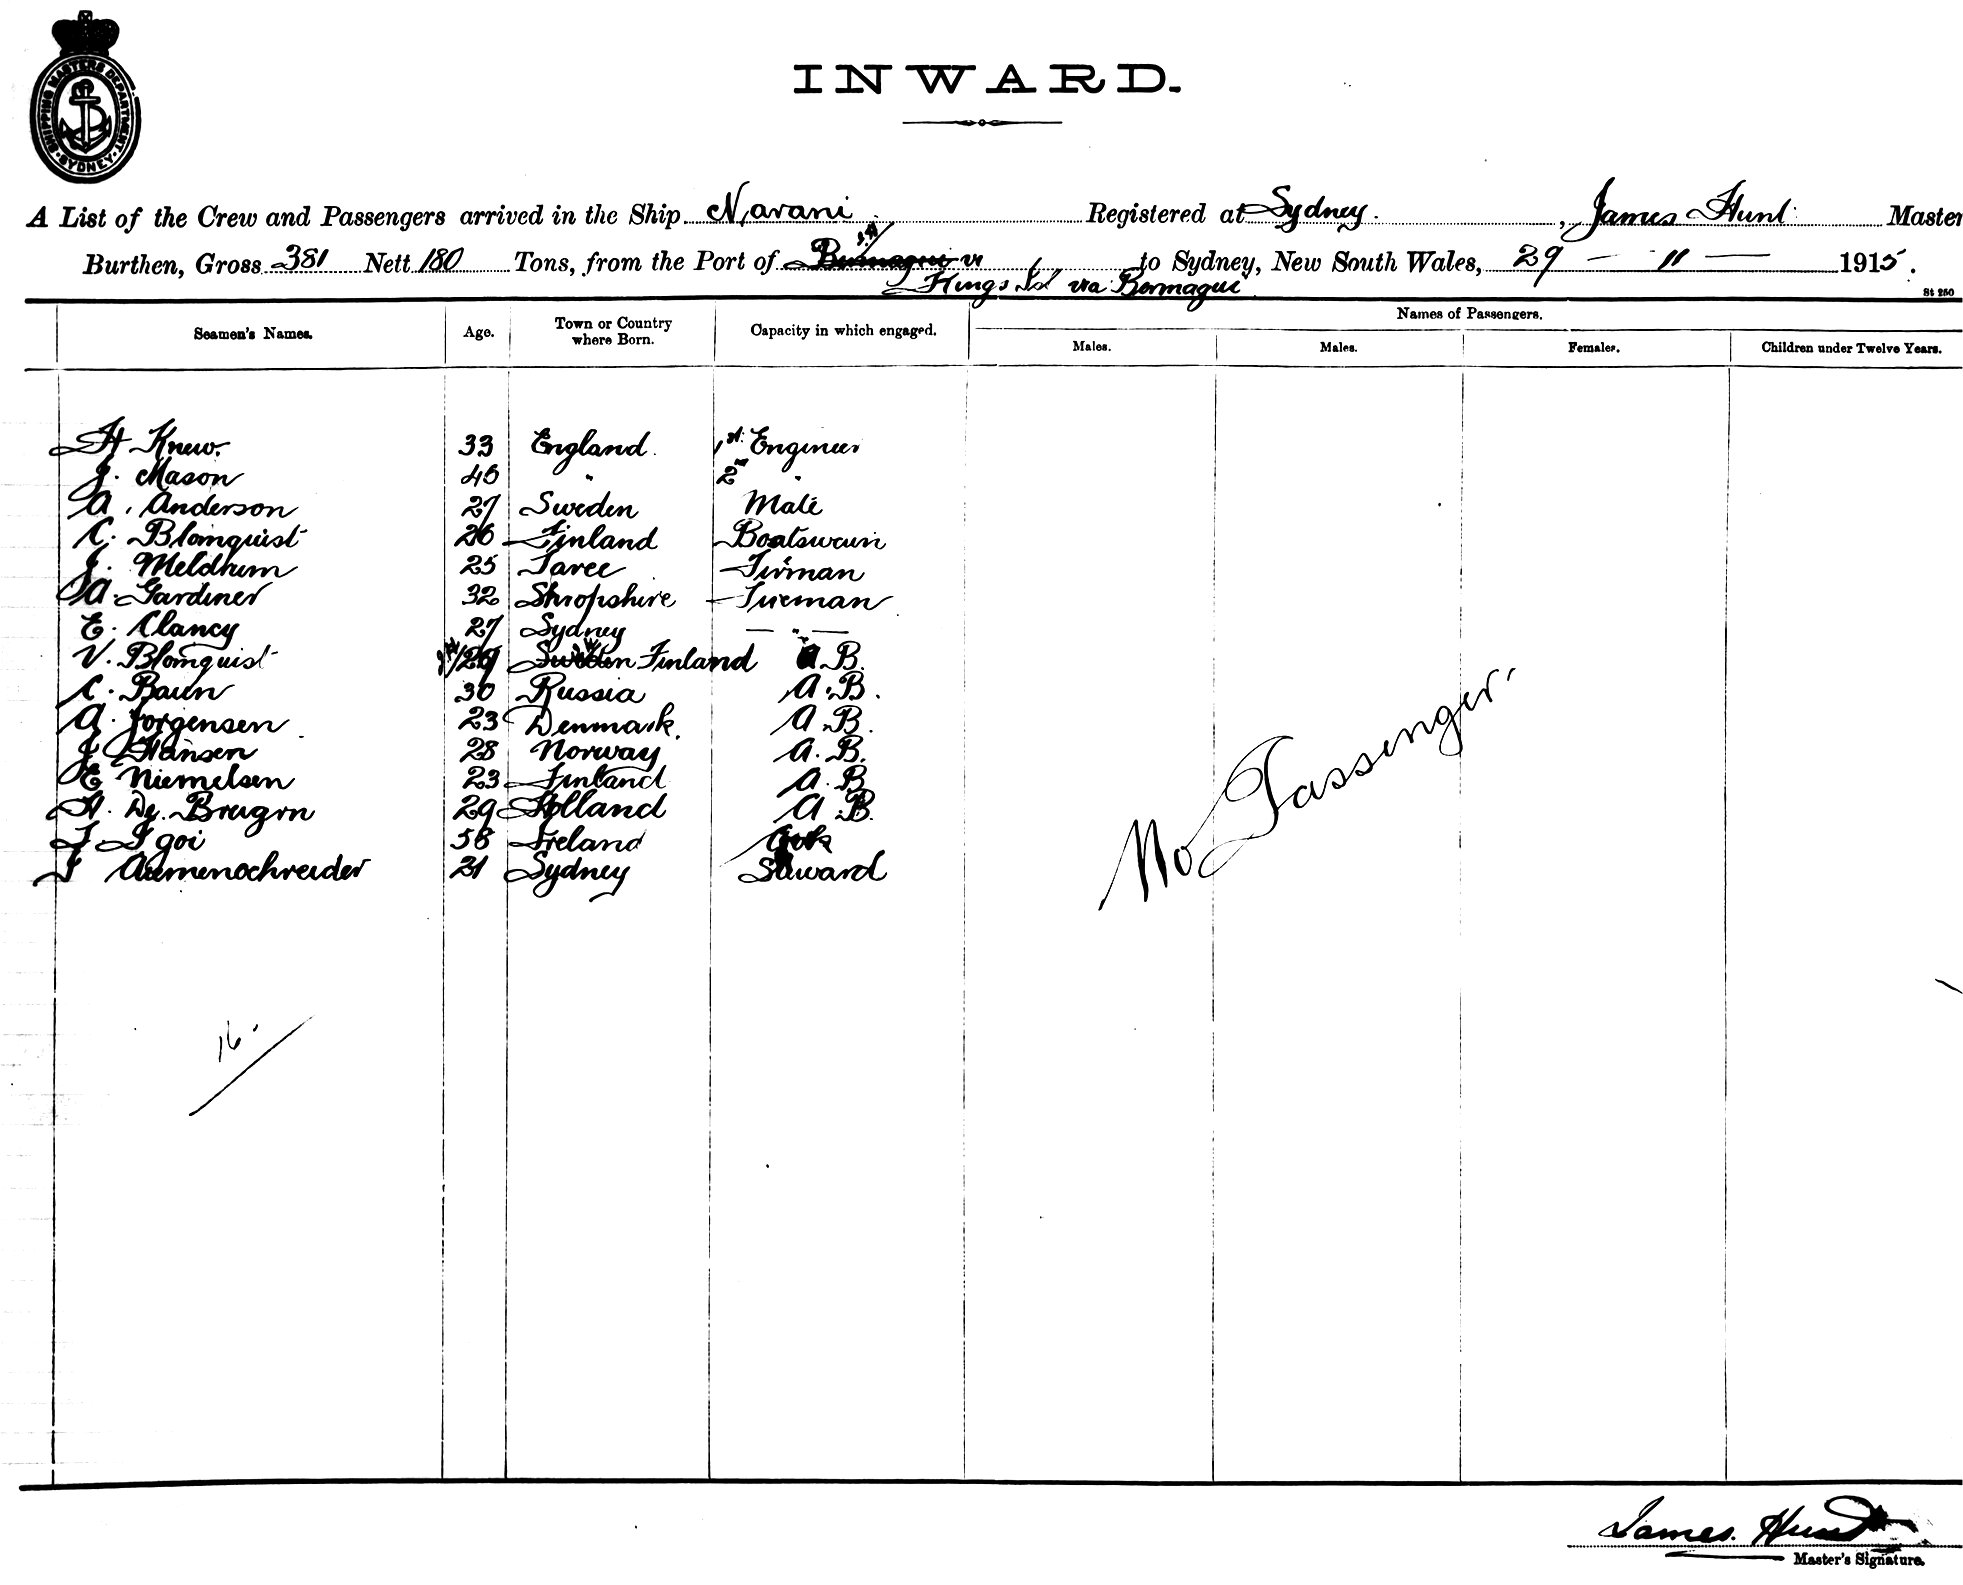 SHIPPING MASTERS DEPARTMENT
SYDNEY
INWARD.
A List of the Crew and Passengers arrived in the Ship Narani Registered at Sydney. , James Hunt Master
Burthen, Gross 381 Nett 180 Tons, from the Port of Bermagui to Sydney, New South Wales, 29 – 11 – 1915.
via Bermagui
St 250
Seamen's Names. Age. Town or Country where Born. Capacity in which engaged. Names of Passengers.
Males. Males. Females. Children under Twelve Years.
H Knew. 33 England. 1st Engineer
J. Mason 45 " 2nd "
A. Anderson 27 Sweden Mate
C. Blomquist 26 Finland Boatswain
J. Meldrum 25 Taree Firman
A. Gardiner 32 Shropshire Fireman
E. Clancy 27 Sydney — " —
V. Blomquist 29 Sweden Finland A.B.
C. Baun 30 Russia A.B.
A. Jorgensen 23 Denmark. A.B.
J Hansen 28 Norway A.B.
E Niemelsen 23 Finland A.B.
H. De. Bruyn 29 Holland A.B.
Igoi 58 Ireland Cook
21 Sydney Steward
No Passenger.
16.
James. Hunt
Master's Signature.